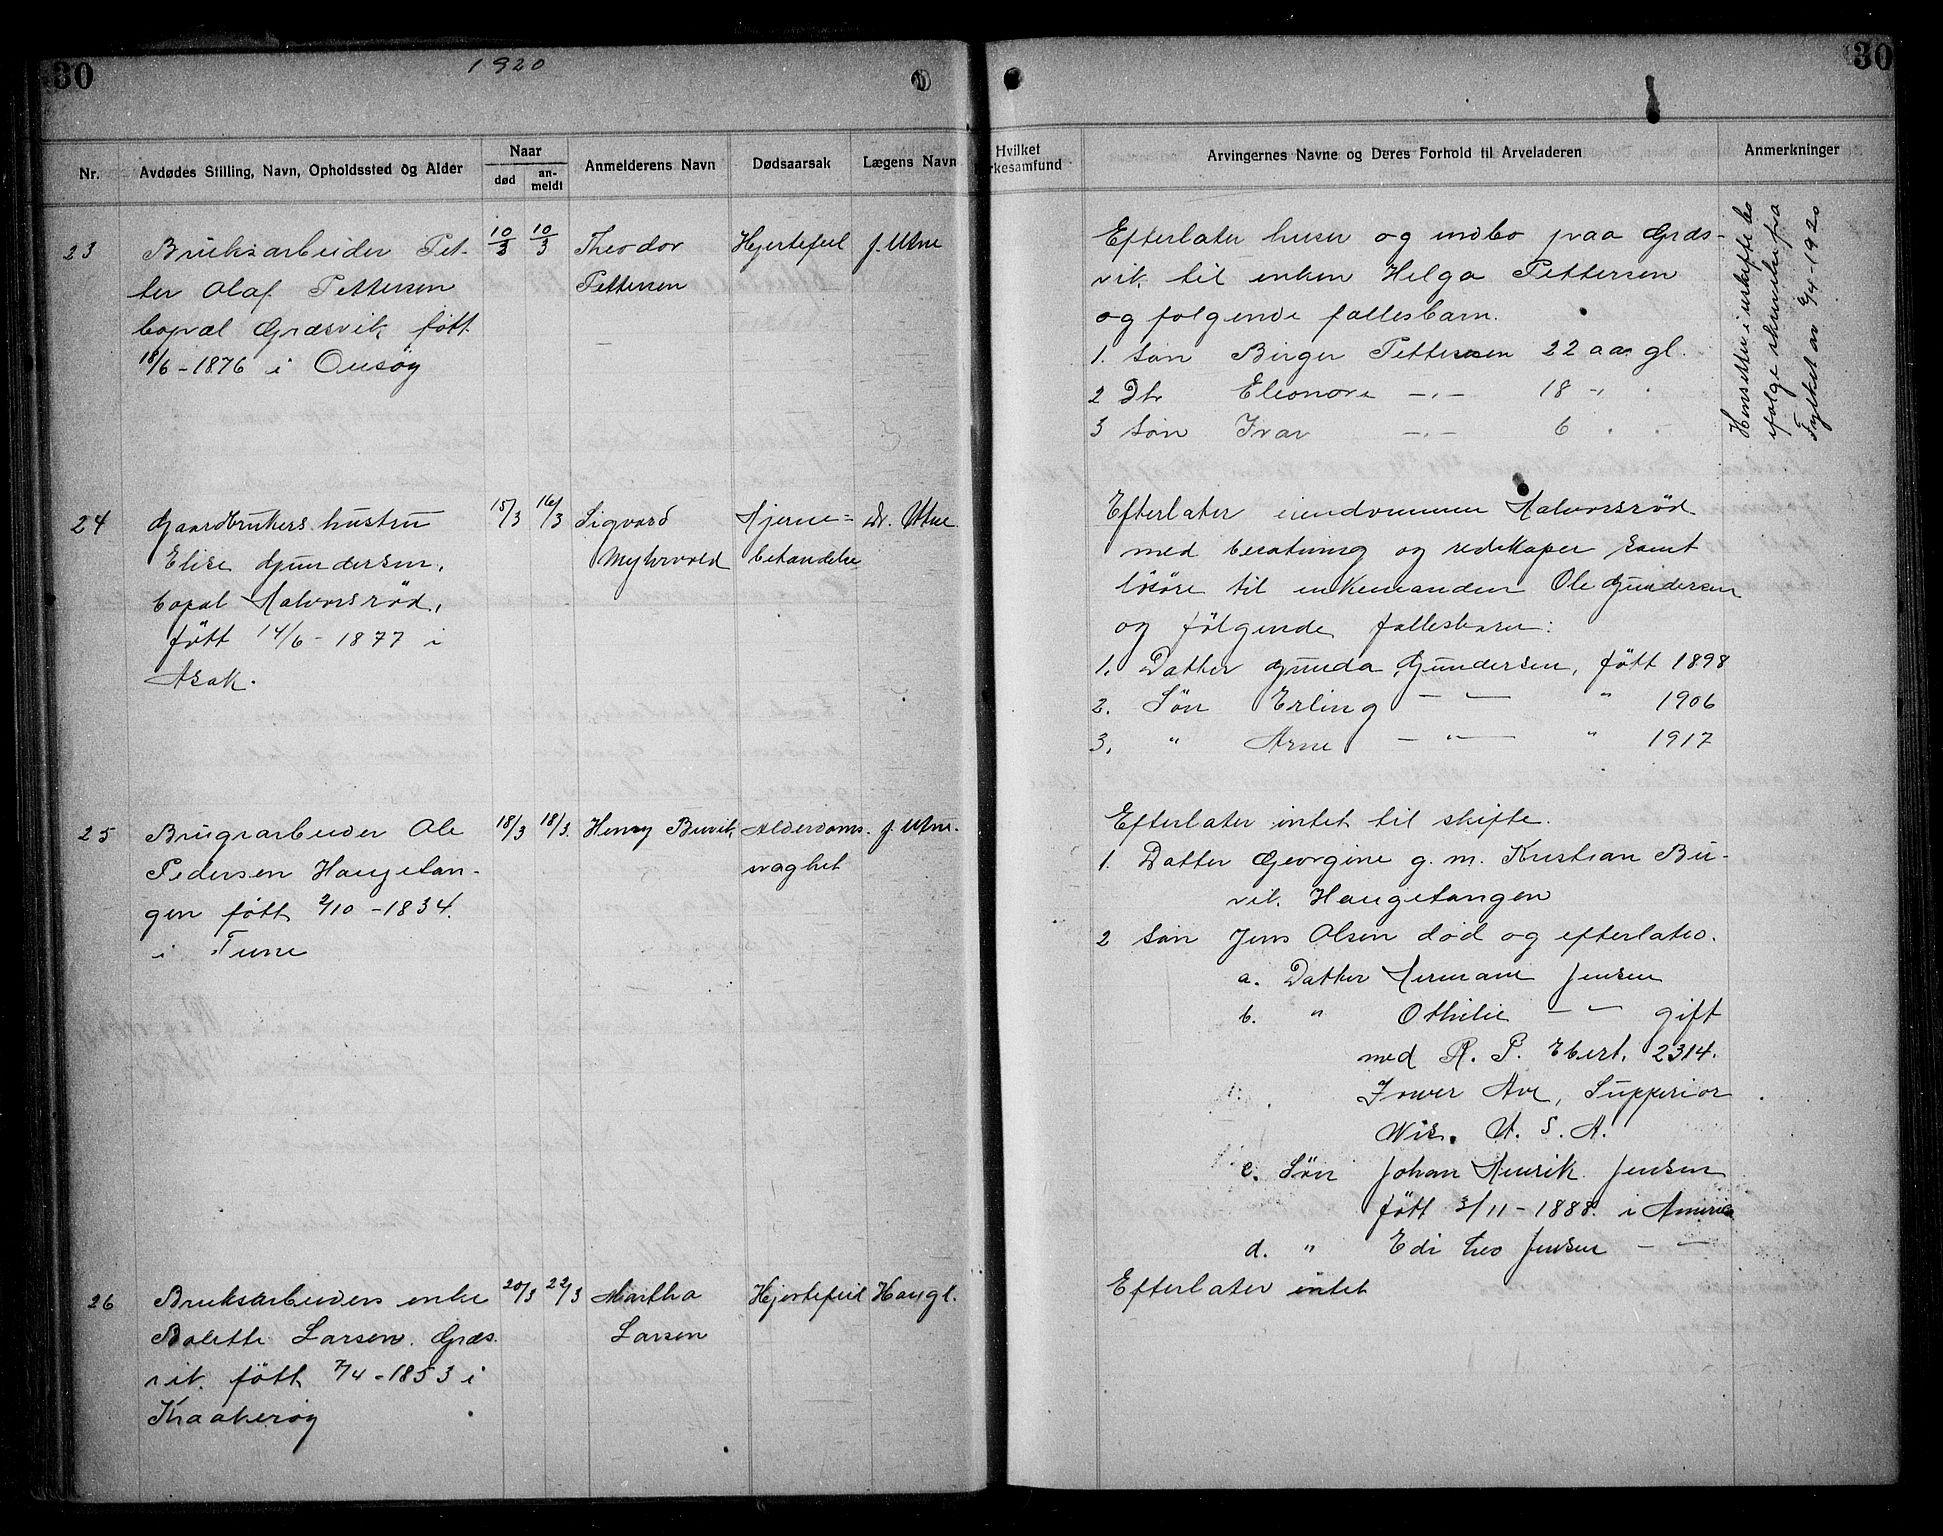 30
1920
30
Nr.
Avdødes Stilling, Navn, Opholdssted og Alder
Naar
død
an-
meldt
Anmelderens Navn
Dødsaarsak
Lægens Navn
Hvilket
rkesamfund
Arvingernes Navne og Deres Forhold til Arveladeren
Anmerkninger
23
Bruksarbeider Pet-
ter Olaf Pettersen
bopæl Græsvik, født
18/6-1876 i Onsøy
10/3
10/3
Theodor
Pettersen
Hjertefeil
J. Utne
Efterlater huser og indbo paa Græs-
vik til enken Helga Pettersen
og følgende fællesbarn.
1. Søn Birger Pettersen 22 aar gl.
2 Dtr Eleonora -„- 18 „
3 Søn Ivar -„- 6 „
Hensitter i uskiftet bo
ifølge skrivelse fra
Fylket av 6/4-1920
24
Gaardbrukers hustru
Elise Gundersen,
bopæl Halvorsrød,
født 14/6-1877 i
Asak.
15/3
16/3
Sigvard
Myhrvold
Hjerne=
betændelse
Dr. Utne
Efterlater eiendommen Halvorsrød
med besætning og redskaper samt
løsøre til enkemanden Ole Gundersen
og følgende fællesbarn:
1. Datter Gunda Gundersen, født 1898
2. Søn Erling - „ - „ 1906
3. „ Arne - „ - „ 1917
25
Brugsarbeider Ole
Pedersen Haugetan-
gen født 2/10-1834.
i Tune
18/3
18/3
Henry Buvik
Alderdoms-
svaghet
J. Utne.
Efterlater intet til skifte.
1. Datter Georgine g. m. Kristian Bu-
vik. Haugetangen
2 Søn Jens Olsen død og efterlater.
a. Datter Hermane Jensen
b. „ Othilie - „ - gift
med R. P. Ebert. 2314.
Tower Ave, Supperior
Wis. U. S. A.
c. Søn Johan Henrik Jensen
født 3/11-1888. i Amerika
d. „ Edi Leo Jensen - „ -
26
Bruksarbeiders enke
Bolette Larsen. Græs-
vik. født 7/4-1853 i
Kraakerøy
20/3
22/3
Martha
Larsen
Hjertefeil
Haugl.
Efterlater intet